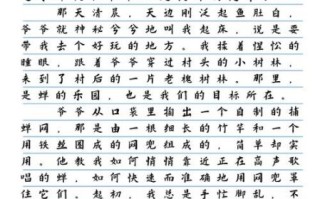 那天清晨，天边刚泛起鱼肚白，
爷爷就神秘兮兮地叫我起床，说是要
带我去个好玩的地方。我揉着惺忪的
睡眼，跟着爷爷穿过村头的小树林，
来到了村后的一片老槐树林。那里，
是蝉的乐园，也是我们的目标所在。
爷爷从口袋里掏出一个自制的捕
蝉网，那是由一根细长的竹竿和一个
用铁丝围成的网兜组成的，简单却实
用。他教我如何悄悄靠近正在高声歌
唱的蝉，如何快速而准确地用网兜罩
住它们。起初，我总是手忙脚乱，不